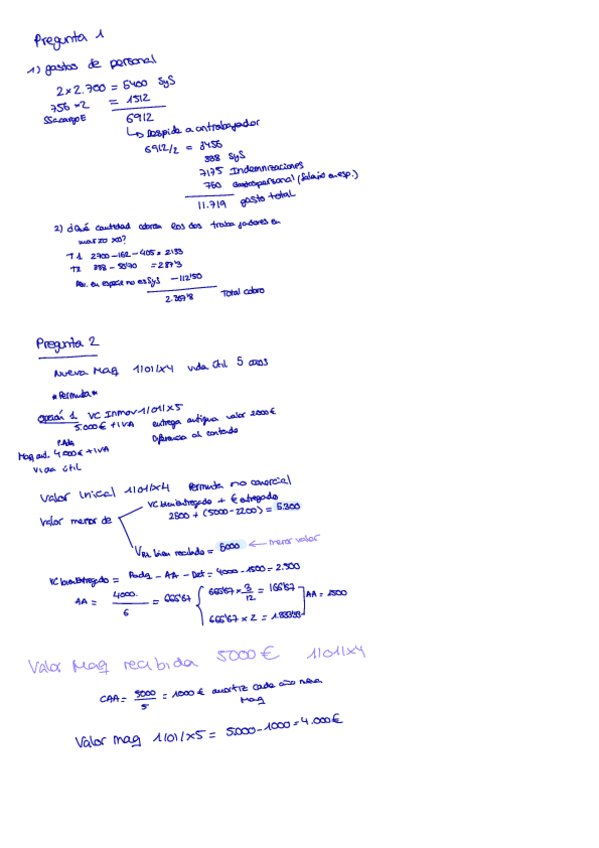 Pregunta 1
1) gastos de personal
2 x 2.700 = 5400 SyS
756 x2 = 1512
SScargoE
6912
↳ Despide a un trabajador
6912/2 = 3456
338 SyS
7175 Indemnizaciones
750 Gastos personal (salario en esp.)
11.719 gasto total
2) ¿Qué cantidad cobran los dos trabajadores en
marzo x0?
T1 2700-162-405 = 2133
T2 338-50'70 = 287'3
en especie no es SyS -112'50
2.307'8 Total cobro
Pregunta 2
Nueva Maq 1/01/x4 vida útil 5 años
*Permuta*
Opción 1 VC Inmov 1/01/x5
5.000€ + IVA entrega antigua valor 2000€
Diferencia al contado
Maq ant. 4.000€ + IVA
Vida útil
Valor Inicial 1/01/x4 Permuta no comercial
Valor menor de
VC bien entregado + € entregado
2500 + (5000-2200) = 5.300
VRz bien recibido = 5000 ← menor valor
VC bien Entregado = Padq - AA - Det = 4000-1500 = 2.500
AA = 4000/6 = 666'67
666'67 x 3/12 = 166'67
666'67 x 2 = 1.333'33
AA = 1500
Valor Maq recibida 5000€ 1/01/x4
CAA = 5000/5 = 1000€ amortiz cada año nueva
Maq
Valor maq 1/01/x5 = 5.000-1000 = 4.000€